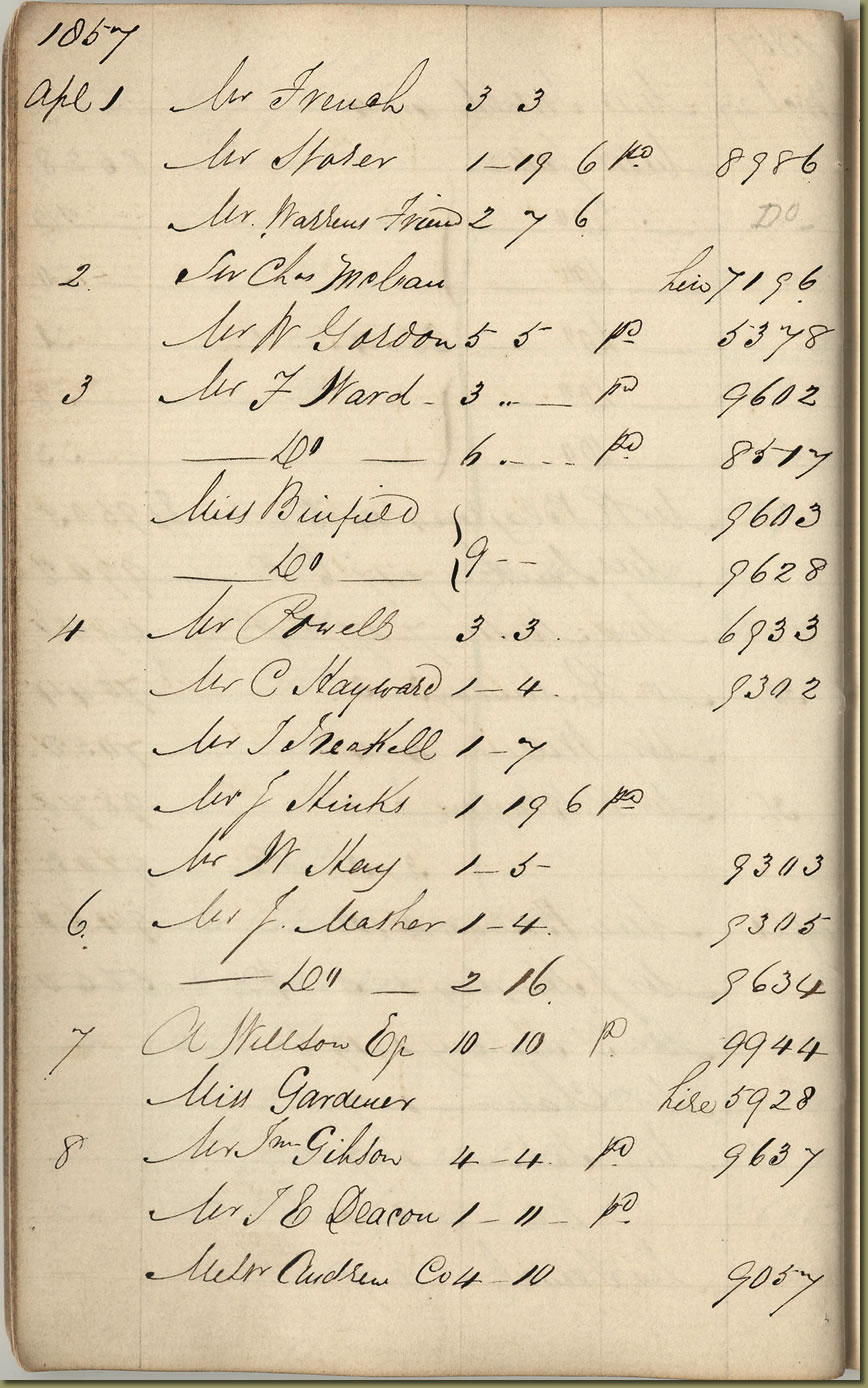 1857
Apl 1 Mr French 3 3
Mr Storer 1-19 6 pd 8986
Mr. Warrens Friend 2 7 6 Do
2 Sir Chas McLean hire 7196
Mr W Gordon 5 5 pd 5378
3 Mr F Ward - 3 " — pd 9602
— Do — 6 . - - - pd 8517
Miss Binfield 9603
— Do — } 9 - - 9628
4 Mr Powell 3 . 3 . 6933
Mr C Hayward 1 - 4 . 9302
Mr J 1 - 7
Mr J Hinks 1 19 6 pd
Mr W Hay 1 - 5 - 9303
6. Mr J. Mather 1 - 4. 9305
— Do — 2 16 9634
7 A Willson Esq 10 - 10 pd 9944
Miss Gardener hire 5928
8 Mr Gibson 4 - 4. pd 9637
Mr J E Deacon 1 - 11 - pd
Andrew Co 4 - 10 9057